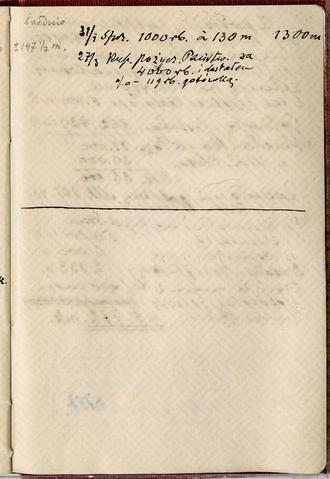 średnio
2147 1/2 m.
31/3 Sprz. 1000 rb. à 130 m 1300 m
27/3 Kup. pożycz. Państw. za
4000 rb. i dostałem
% - 119 rb. gotówką